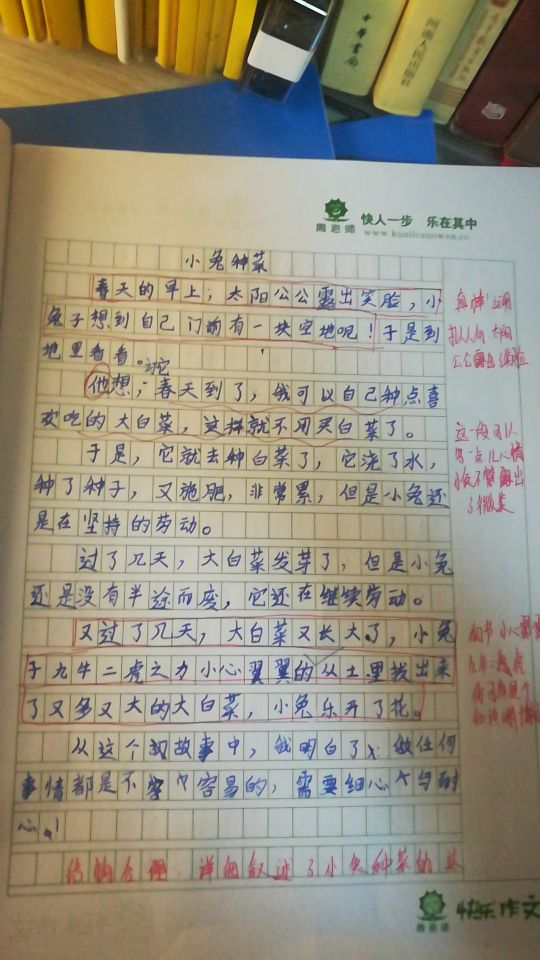 中華書局
河南人民出版社
周老师
快人一步 乐在其中
www.kuailezuowen.cc
小兔种菜
春天的早上，太阳公公露出笑脸，小
兔子想到自己门前有一块空地呢！于是到
地里看看。
它
他想，春天到了，我可以自己种点喜
欢吃的大白菜，这样就不用买白菜了。
于是，它就去种白菜了，它浇了水，
种了种子，又施肥，非常累，但是小兔还
是在坚持的劳动。
过了几天，大白菜发芽了，但是小兔
还是没有半途而废，它还在继续劳动。
又过了几天，大白菜又长大了，小兔
子九牛二虎之力小心翼翼的从土里拔出来
了又多又大的大白菜，小兔乐开了花。
从这个故事中，我明白了：做任何
事情都是不容易的，需要细心与耐
心！
真棒！运用
拟人句 太阳
公公露出笑脸
这一段可以
写一点儿
露出
了微笑
小心翼翼
九牛二虎
结构合理 详细叙述了小兔种菜的
周老师
快乐作文